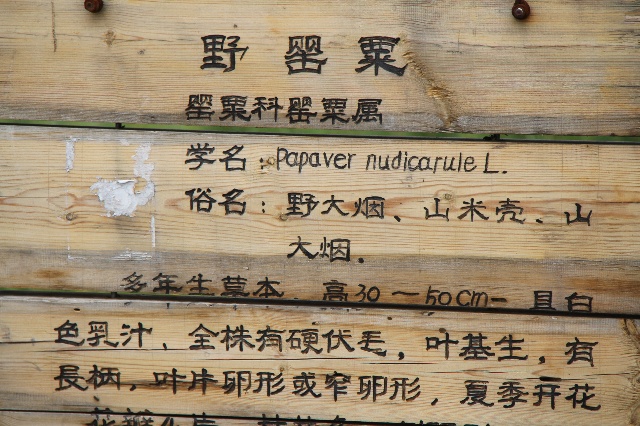 野罂粟
罂粟科罂粟属
学名：Papaver nudicarule L.
俗名：野大烟、山米壳、山
大烟.
多年生草本 高30～50cm 具白
色乳汁、全株有硬伏毛，叶基生，有
長柄，叶片卵形或窄卵形，夏季开花
花瓣